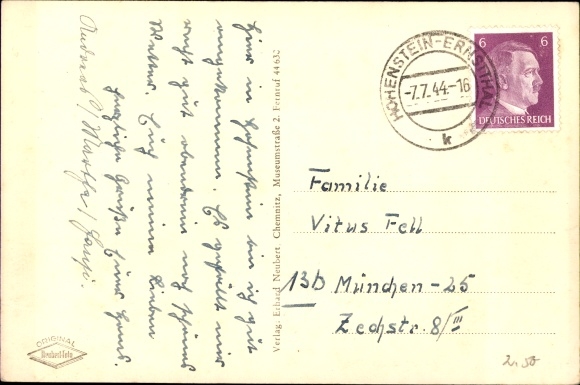 Hier in Hohenstein bin ich gut
angekommen. Es gefällt mir
recht gut obendrein noch schönes
Wetter. Euch meinen Lieben
herzliche Grüße Euer Hans.
Verlag Erhard Neubert Chemnitz, Museumstraße 2. Fernruf 44630
ORIGINAL
Neubert-Foto
HOHENSTEIN-ERNSTTHAL
-7.7.44.-16
k
6 6
DEUTSCHES REICH
Familie
Vitus Fell
13b München-25
Zechstr. 8/III
2.50